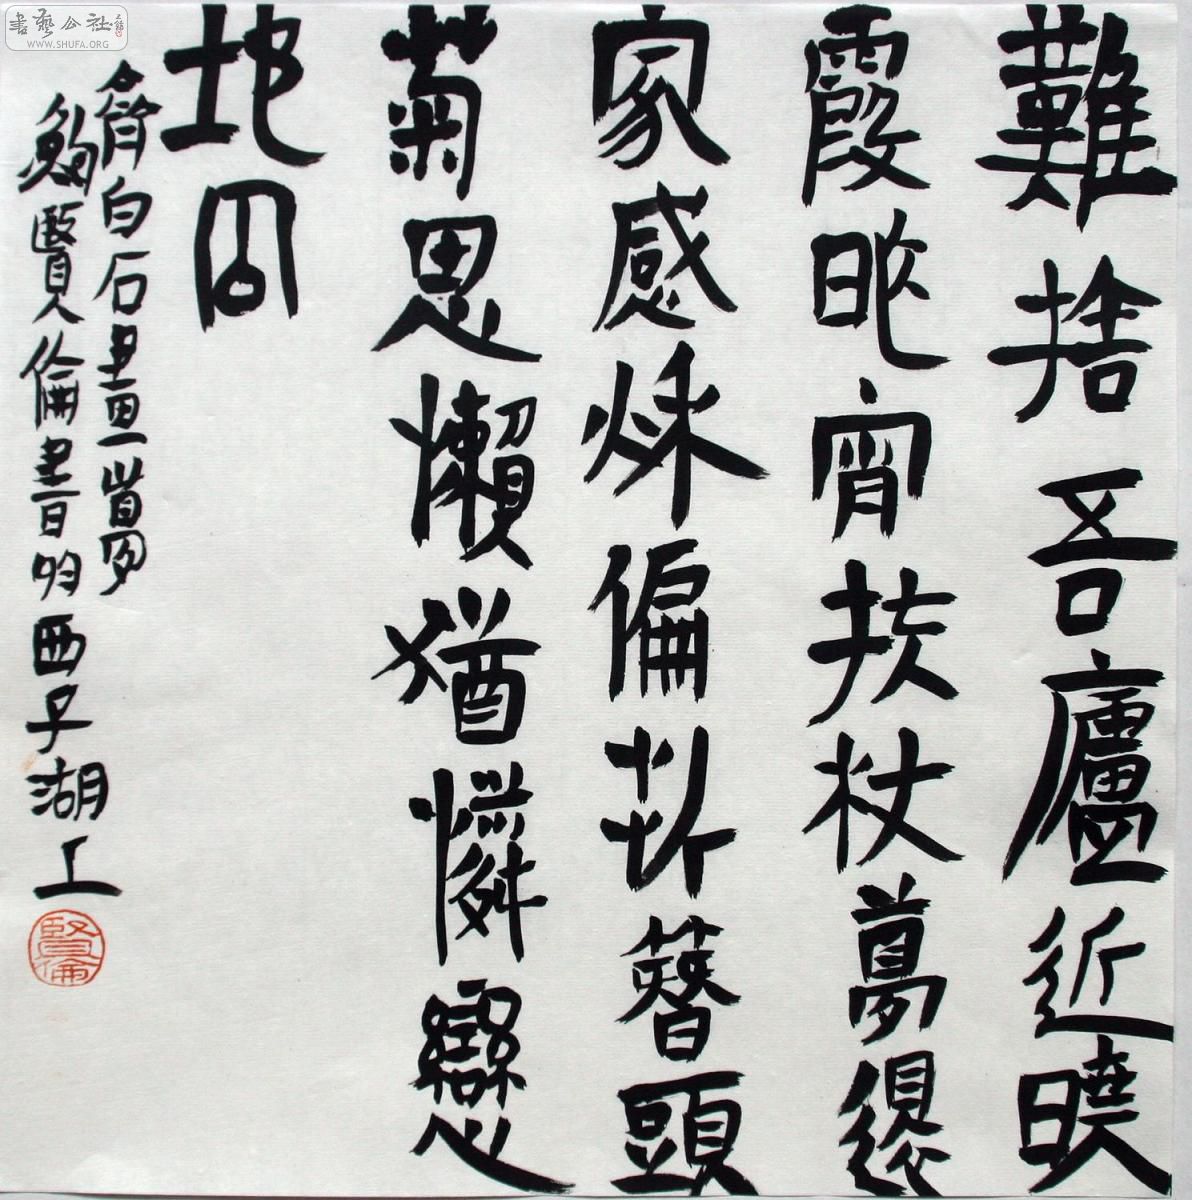 難捨吾廬近曉
霞眠宵扶杖夢還
家感秌偏折簪頭
菊思懶猶憐戀
地囚
齊白石畫一首夢
鮑賢倫書於西子湖上
賢倫
書藝公社
WWW.SHUFA.ORG